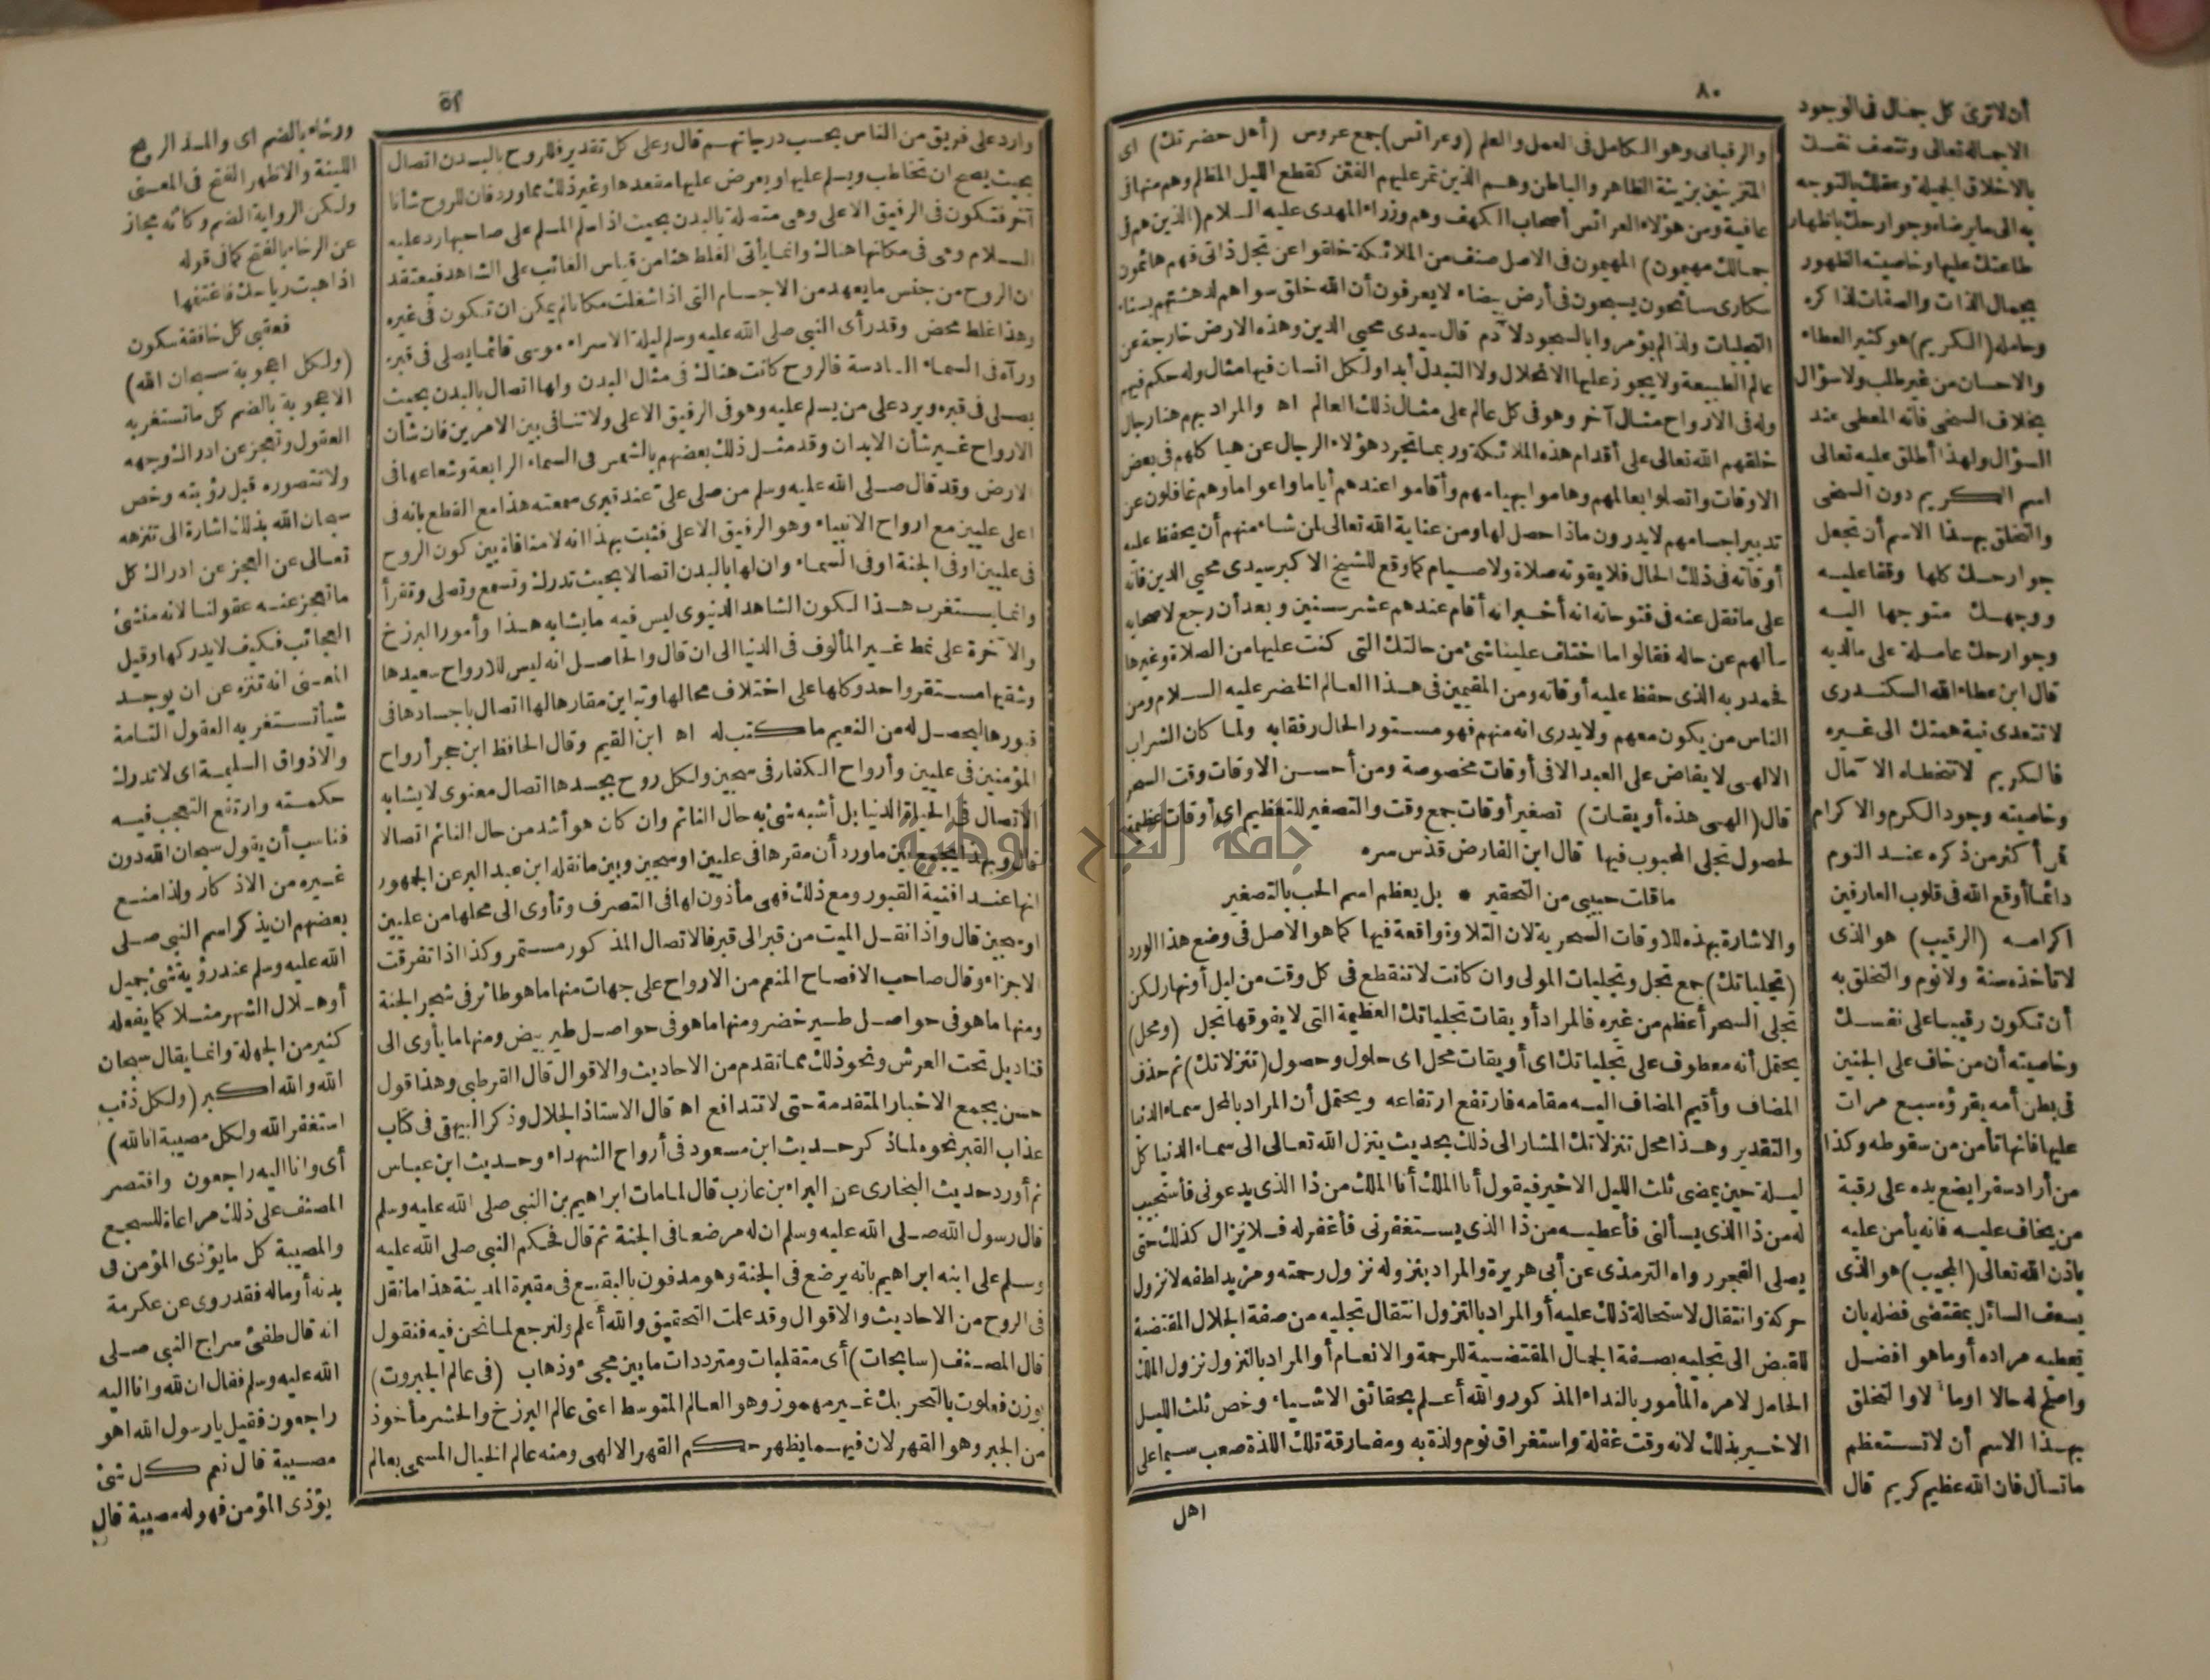 ٨٠
والرقبانى وهو الكامل فى العمل والعلم (وعرائس) جمع عروس (أهل حضرتك) اى
المتزينين بزينة الظاهر والباطن وهم الذين تمر عليهم الفتن كقطع الليل المظلم وهم منها فى
عافية ومن هؤلاء العرائس أصحاب الكهف وهم وزراء المهدى عليه السلام (الذين هم فى
جمالك مهيمون) المهيمون فى الاصل صنف من الملائكة خلقوا عن تجل ذاتى فهم هائمون
سكارى سائحون يسبحون فى أرض بيضاء لا يعرفون أن الله خلق سواهم لدهشتهم بسناء
التجليات ولذا لم يؤمروا بالسجود لا آدم قال سيدى محيى الدين وهذه الارض خارجة عن
عالم الطبيعة ولا يجوز عليها الانحلال ولا التبدل أبدا ولكل انسان فيها مثال وله حكم فيهم
وله فى الارواح مثال آخر وهو فى كل عالم على مثال ذلك العالم اه والمراد بهم هنا رجال
خلقهم الله تعالى على أقدام هذه الملائكة وربما تجرد هؤلاء الرجال عن هياكلهم فى بعض
الاوقات واتصلوا بعالمهم وهاموا بهيامهم وأقاموا عندهم أياما واعواما وهم غافلون عن
تدبير اجسامهم لا يدرون ماذا حصل لها ومن عناية الله تعالى لمن شاء منهم أن يحفظ عليه
أوقاته فى ذلك الحال فلا يفوته صلاة ولا صيام كما وقع للشيخ الاكبر سيدى محيى الدين فانه
على ما نقل عنه فى فتوحاته انه أخبر انه أقام عندهم عشر سنين وبعد أن رجع لاصحابه
سألهم عن حاله فقالوا ما اختلف علينا شئ من حالتك التى كنت عليها من الصلاة وغيرها
فحمد ربه الذى حفظ عليه أوقاته ومن المقيمين فى هذا العالم الخضر عليه السلام ومن
الناس من يكون معهم ولا يدرى انه منهم فهو مستور الحال رفقا به ولما كان الشراب
الالهى لا يفاض على العبد الا فى أوقات مخصوصة ومن أحسن الاوقات وقت السحر
قال (الهى هذه أويقات) تصغير أوقات جمع وقت والتصغير للتعظيم اى أوقات عظيمة
لحصول تجلى المحبوب فيها قال ابن الفارض قدس سره
ما قلت حبيبى من التحقير * بل يعظم اسم الحب بالتصغير
والاشارة بهذه للاوقات السحرية لان التلاوة واقعة فيها كما هو الاصل فى وضع هذا الورد
(تجلياتك) جمع تجل وتجليات المولى وان كانت لا تنقطع فى كل وقت من ليل أو نهار لكن
تجلى السحر أعظم من غيره فالمراد أويقات تجلياتك العظيمة التى لا يفوقها تجل (ومحل)
يحتمل أنه معطوف على تجلياتك اى أويقات محل اى حلول وحصول (تنزلاتك) ثم حذف
المضاف وأقيم المضاف اليه مقامه فارتفع ارتفاعه ويحتمل أن المراد بالمحل سماء الدنيا
والتقدير وهذا محل تنزلاتك المشار الى ذلك بحديث ينزل الله تعالى الى سماء الدنيا كل
ليلة حين يمضى ثلث الليل الاخير فيقول أنا الملك أنا الملك من ذا الذى يدعونى فأستجيب
له من ذا الذى يسألنى فأعطيه من ذا الذى يستغفرنى فأغفر له فلا يزال كذلك حتى
يصلى الفجر رواه الترمذى عن أبى هريرة والمراد بنزوله نزول رحمته ومزيد لطفه لا نزول
حركة وانتقال لاستحالة ذلك عليه أو المراد بالنزول انتقال تجليه من صفة الجلال المقتضية
للقبض الى تجليه بصفة الجمال المقتضية للرحمة والانعام أو المراد بالنزول نزول الملك
الحامل لامره المأمور بالنداء المذكور والله أعلم بحقائق الاشياء وخص ثلث الليل
الاخير بذلك لانه وقت غفلة واستغراق نوم ولذة به ومفارقة تلك اللذة صعب سيما على
اهل
أن لا ترى كل جمال فى الوجود
الا جماله تعالى وتتصف نفسك
بالاخلاق الجميلة وعقلك بالتوجه
به الى ما يرضاه وجوارحك باظهار
طاعتك عليها وخاصيته الظهور
بجمال الذات والصفات لذاكره
وحامله (الكريم) هو كثير العطاء
والاحسان من غير طلب ولا سؤال
بخلاف السخى فانه المعطى عند
السؤال ولهذا أطلق عليه تعالى
اسم الكريم دون السخى
والتخلق بهذا الاسم أن تجعل
جوارحك كلها وقفا عليه
ووجهك متوجها اليه
وجوارحك عاملة على ما لديه
قال ابن عطاء الله السكندرى
لا تتعدى نية همتك الى غيره
فالكريم لا تتخطاه الا مال
وخاصيته وجود الكرم والاكرام
فمن أكثر من ذكره عند النوم
دائما أوقع الله فى قلوب العارفين
اكرامه (الرقيب) هو الذى
لا تأخذه سنة ولا نوم والتخلق به
أن تكون رقيبا على نفسك
وخاصيته أن من خاف على الجنين
فى بطن أمه يقرؤه سبع مرات
عليها فانها تأمن من سقوطه وكذا
من أراد سفرا يضع يده على رقبة
من يخاف عليه فانه يأمن عليه
باذن الله تعالى (المجيب) هو الذى
يسعف السائل بمقتضى فضله بان
تعطيه مراده أو ما هو افضل
واصلح له حالا اوما لا والتخلق
بهذا الاسم أن لا تستعظم
ما تسأل فان الله عظيم كريم قال
٥٢
وارد على فريق من الناس بحسب درجاتهم قال وعلى كل تقدير فللروح بالبدن اتصال
بحيث يصح ان تخاطب ويسلم عليها ويعرض عليها مقعدها وغير ذلك مما ورد فان للروح شأنا
آخر فتكون فى الرفيق الاعلى وهى متصلة بالبدن بحيث اذا سلم المسلم على صاحبها رد عليه
السلام وهى فى مكانها هناك وانما يأتى الغلط هنا من قياس الغائب على الشاهد فيعتقد
ان الروح من جنس ما يعهد من الاجسام التى اذا شغلت مكانا لم يمكن ان تكون فى غيره
وهذا غلط محض وقد رأى النبى صلى الله عليه وسلم ليلة الاسراء موسى قائما يصلى فى قبره
ورآه فى السماء السادسة فالروح كانت هناك فى مثال البدن ولها اتصال بالبدن بحيث
يصلى فى قبره ويرد على من يسلم عليه وهو فى الرفيق الاعلى ولا تنافى بين الامرين فان شأن
الارواح غير شأن الابدان وقد مثل ذلك بعضهم بالشمس فى السماء الرابعة وشعاعها فى
الارض وقد قال صلى الله عليه وسلم من صلى على عند قبرى سمعته هذا مع القطع بانه فى
اعلى عليين مع ارواح الانبياء وهو الرفيق الاعلى فثبت بهذا انه لا منافاة بين كون الروح
فى عليين او فى الجنة او فى السماء وان لها بالبدن اتصالا بحيث تدرك وتسمع وتصلى وتقرأ
وانما يستغرب هذا لكون الشاهد الدنيوى ليس فيه ما يشابه هذا وأمور البرزخ
والآخرة على نمط غير المألوف فى الدنيا الى ان قال والحاصل انه ليس للارواح سعيدها
وشقيها مستقر واحد وكلها على اختلاف محالها وتباين مقارها لها اتصال باجسادها فى
قبورها ليحصل له من النعيم ما كتب له اه ابن القيم وقال الحافظ ابن حجر أرواح
المؤمنين فى عليين وأرواح الكفار فى سجين ولكل روح بجسدها اتصال معنوى لا يشابه
الاتصال فى الحياة الدنيا بل أشبه شئ به حال النائم وان كان هو أشد من حال النائم اتصالا
قال وبهذا يجمع بين ما ورد أن مقرها فى عليين او سجين وبين ما نقله ابن عبد البر عن الجمهور
انها عند افنية القبور ومع ذلك فهى مأذون لها فى التصرف وتأوى الى محلها من عليين
او سجين قال واذا نقل الميت من قبر الى قبر فالاتصال المذكور مستمر وكذا اذا تفرقت
الاجزاء وقال صاحب الافصاح المنعم من الارواح على جهات منها ما هو طائر فى شجر الجنة
ومنها ما هو فى حواصل طير خضر ومنها ما هو فى حواصل طير بيض ومنها ما يأوى الى
قناديل تحت العرش ونحو ذلك مما تقدم من الاحاديث والاقوال قال القرطبى وهذا قول
حسن يجمع الاخبار المتقدمة حتى لا تتدافع اه قال الاستاذ الجلال وذكر البيهقى فى كتاب
عذاب القبر نحوه لما ذكر حديث ابن مسعود فى أرواح الشهداء وحديث ابن عباس
ثم أورد حديث البخارى عن البراء بن عازب قال لما مات ابراهيم بن النبى صلى الله عليه وسلم
قال رسول الله صلى الله عليه وسلم ان له مرضعا فى الجنة ثم قال فحكم النبى صلى الله عليه
وسلم على ابنه ابراهيم بانه يرضع فى الجنة وهو مدفون بالبقيع فى مقبرة المدينة هذا ما نقل
فى الروح من الاحاديث والاقوال وقد علمت التحقيق والله أعلم ولنرجع لما نحن فيه فنقول
قال المصنف (سابحات) أى متقلبات ومترددات ما بين مجىء وذهاب (فى عالم الجبروت)
بوزن فعلوت بالتحريك غير مهموز وهو العالم المتوسط اعنى عالم البرزخ والحشر مأخوذ
من الجبر وهو القهر لان فيهما يظهر حكم القهر الالهى ومنه عالم الخيال المسمى بعالم
ورخاء بالضم اى والمد الريح
اللينة والاظهر الفتح فى المعنى
ولكن الرواية الضم وكأنه مجاز
عن الرخاء بالفتح كما فى قوله
اذا هبت رياحك فاغتنمها
فعقبى كل خافقة سكون
(ولكل اعجوبة سبحان الله)
الاعجوبة بالضم كل ما تستغربه
العقول وتعجز عن ادراك وجهه
ولا تتصوره قبل رؤيته وخص
سبحان الله بذلك اشارة الى تنزهه
تعالى عن العجز عن ادراك كل
ما تعجز عنه عقولنا لانه منشئ
العجائب فكيف لا يدركها وقيل
المعنى انه تنزه عن ان يوجد
شيأ تستغربه العقول التامة
والاذواق السليمة اى لا تدرك
حكمته وارتفع التعجب فيه
فناسب أن يقول سبحان الله دون
غيره من الاذكار ولذا منع
بعضهم ان يذكر اسم النبى صلى
الله عليه وسلم عند رؤية شئ جميل
أو هلال الشهر مثلا كما يفعله
كثير من الجهلة وانما يقال سبحان
الله والله اكبر (ولكل ذنب
استغفر الله ولكل مصيبة انا لله)
أى وانا اليه راجعون واقتصر
المصنف على ذلك مراعاة للسجع
والمصيبة كل ما يؤذى المؤمن فى
بدنه أو ماله فقد روى عن عكرمة
انه قال طفئ سراج النبى صلى
الله عليه وسلم فقال ان لله وانا اليه
راجعون فقيل يا رسول الله اهو
مصيبة قال نعم كل شئ
يؤذى المؤمن فهو له مصيبة قال
جامعة النجاح الوطنية